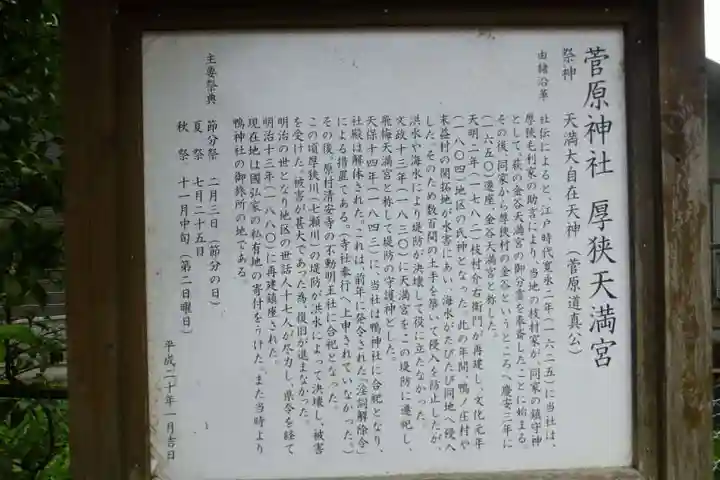 菅原神社 厚狭天満宮
祭神 天満大自在天神(菅原道真公)
由緒沿革
社伝によると、江戸時代寛永二年(一六二五)に当社は、
厚狭毛利家の助言により、当地の枝村家が、同家の鎮守神
として萩の金谷天満宮の御分霊を奉斎したことに始まる。
その後、同家から厚狭村の金谷というところへ、慶安三年に
(一六五〇)遷座、金谷天満宮と称した。
天明二年(一七八二)枝村杢右衛門が再建し、文化元年
(一八〇四)地区の氏神となった。此の年間、鴨ノ庄村や
末益村の開拓地が水害にあい、海水がたびたび同地へ侵入
した。そのため数百間の土手を築いて侵入を防止したが、
洪水や海水により堤防が決壊して役に立たなかった。
文政十三年(一八三〇)に天満宮をこの堤防に遷祀し、
飛梅天満宮と称して堤防の守護神とした。
天保十四年(一八四三)に、当社は鴨神社に合祀となり、
社殿は解体された。これは、前年に発令された「淫祠解除令」
による措置である。(寺社奉行へ上申されていなかった。)
その後、原村清安寺の不動明王社に合祀となった。
この頃厚狭川(七瀬川)の堤防が洪水によって決壊し、被害
を受けた。被害が甚大であった為、復旧が進まなかった。
明治の世となり地区の世話人十七人が尽力し、県令を経て
明治十三年(一八八〇)に再建鎮座された。
現在地は國弘家の私有地の寄付をうけた。また当時より
鴨神社の御旅所の地である。
主要祭典
節分祭 二月三日(節分の日)
夏祭 七月二十五日
秋祭 十一月中旬(第二日曜日)
平成二十年一月吉日